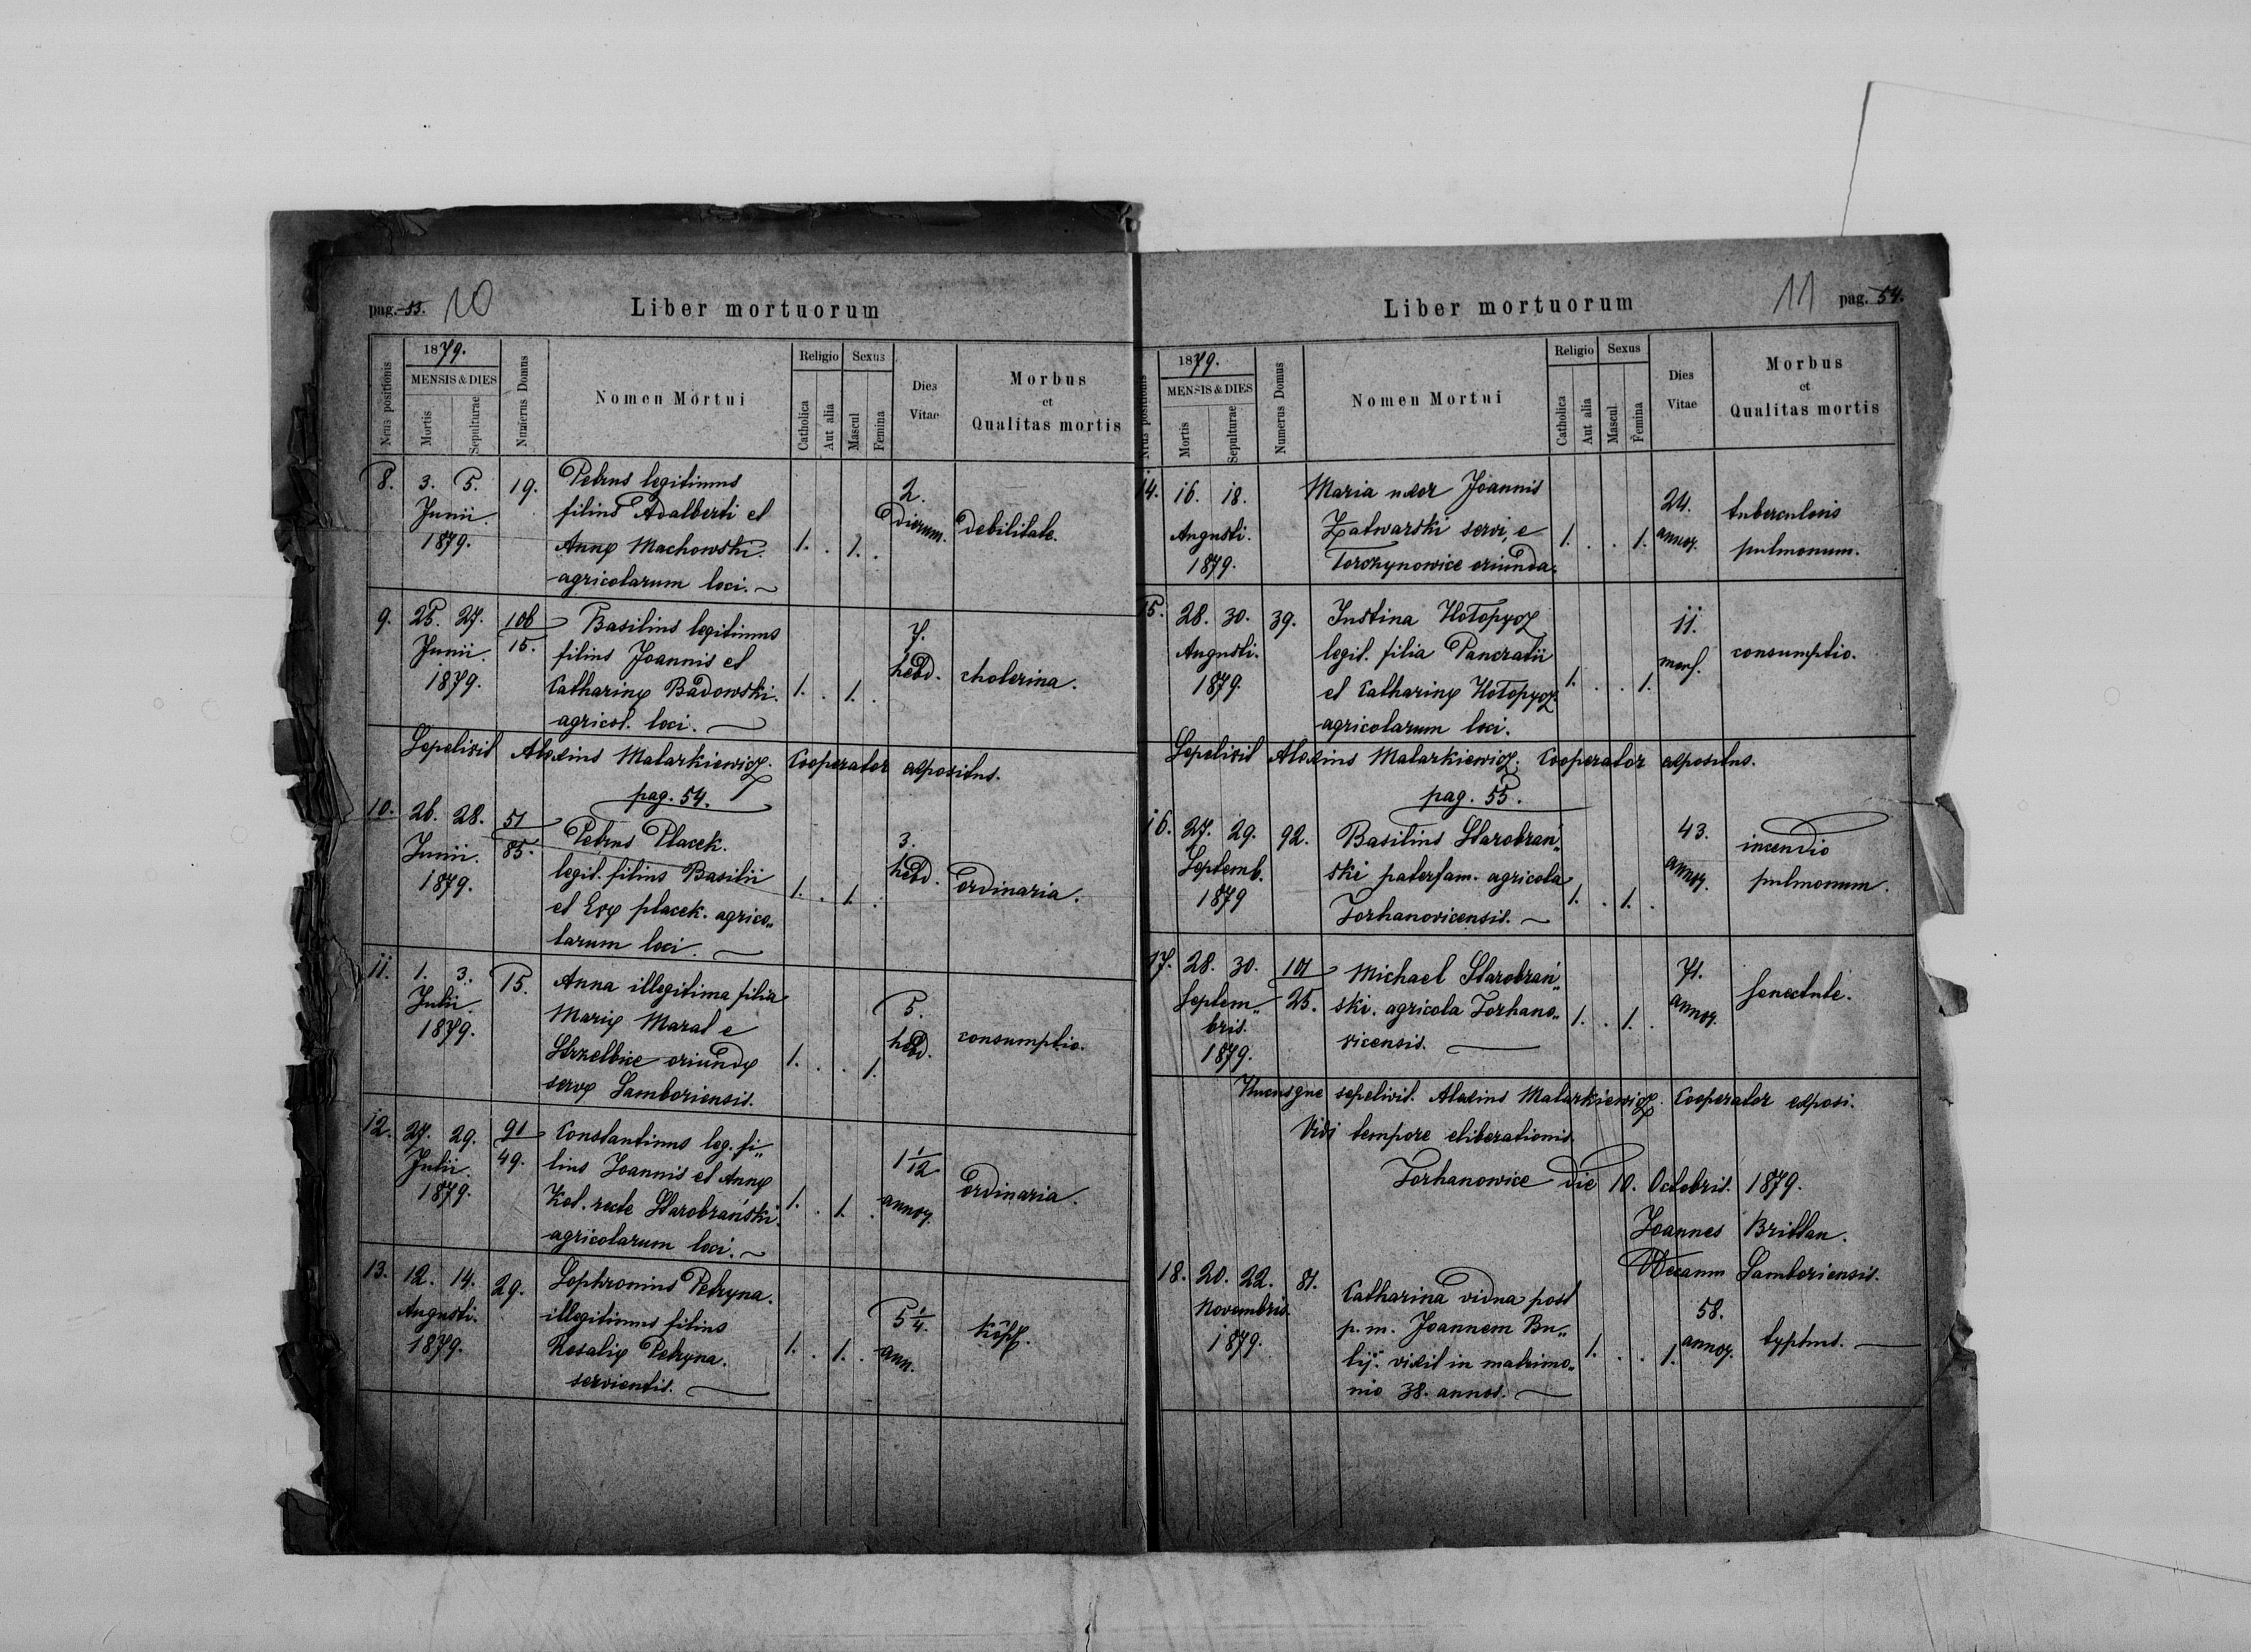 pag. 53. 10
Liber mortuorum
Nrus positionis
1879.
MENSIS & DIES
Mortis
Sepulturae
Numerus Domus
Nomen Mortui
Religio
Catholica
Aut alia
Sexus
Mascul
Femina
Dies
Vitae
Morbus
et
Qualitas mortis
8. 3. 5. 19. Petrus legitimus 2.
Junii. filius Adalberti et dierum. debilitate.
1879. Annę Machowski. 1. . 1. .
agricolarum loci.
9. 25. 27. 106 Basilius legitimus 7.
Junii. 15. filius Joannis et hebd. cholerina.
1879. Catharinę Badowski. 1. . 1. .
agricol. loci.
Sepelivit Alexius Malarkiewicz. Cooperator expositus.
pag. 54.
10. 26. 28. 51 Petrus Placek. 3.
Junii. 85. legit. filius Basilii hebd. ordinaria.
1879. et Evę placek. agrico„ 1. . 1. .
larum loci.
11. 1. 3. 15. Anna illegitima filia 5.
Julii. Marię Maral e hebd. consumptio.
1879. Strzelbice oriundę 1. . . 1.
servę Samboriensis.
12. 27. 29. 91 Constantinus leg. fi„ 1 1/12
Julii. 49. lius Joannis et Annę annor. ordinaria.
1879. Kot. recte Starobrański. 1. . 1. .
agricolarum loci.
13. 12. 14. 29. Sophronius Petryna. 5 1/4.
Augusti. illegitimus filius ann.
1879. Rosalię Petryna. 1. . 1. .
servientis.
Liber mortuorum
11 pag. 54.
Nrus positionis
1879.
MENSIS & DIES
Mortis
Sepulturae
Numerus Domus
Nomen Mortui
Religio
Catholica
Aut alia
Sexus
Mascul
Femina
Dies
Vitae
Morbus
et
Qualitas mortis
14. 16. 18. Maria uxor Joannis 24. tuberculosis
Augusti. Zatwarski servi, e 1. . . 1. annor. pulmonum.
1879. Torczynowice oriunda.
15. 28. 30. 39. Justina 11.
Augusti. legit. filia Pancratii mens. consumptio.
1879. et Catharinę 1. . . 1.
agricolarum loci.
Sepelivit Alexius Malarkiewicz. Cooperator expositus.
pag. 55.
16. 27. 29. 92. Basilius Starobrań„ 43. incendio
Septemb. ski paterfam. agricola annor. pulmonum.
1879 Torhanovicensis. 1. . 1. .
17. 28. 30. 101 Michael Starobrań„ 71. senectute.
Septem„ 25. ski. agricola Torhano„ 1. . 1. . annor.
bris. vicensis.
1879.
Hucusque sepelivit. Alexius Malarkiewicz. Cooperator exposi.
Vidi tempore
Torhanowice die 10. Octobris. 1879.
Joannes Brittan.
Decanus Samboriensis.
18. 20. 22. 81. Catharina vidua post 58.
Novembris. p. m. Joannem Bu„ annor. typhus.
1879. lij. vixit in matrimo„ 1. . . 1.
nio 38. annos.